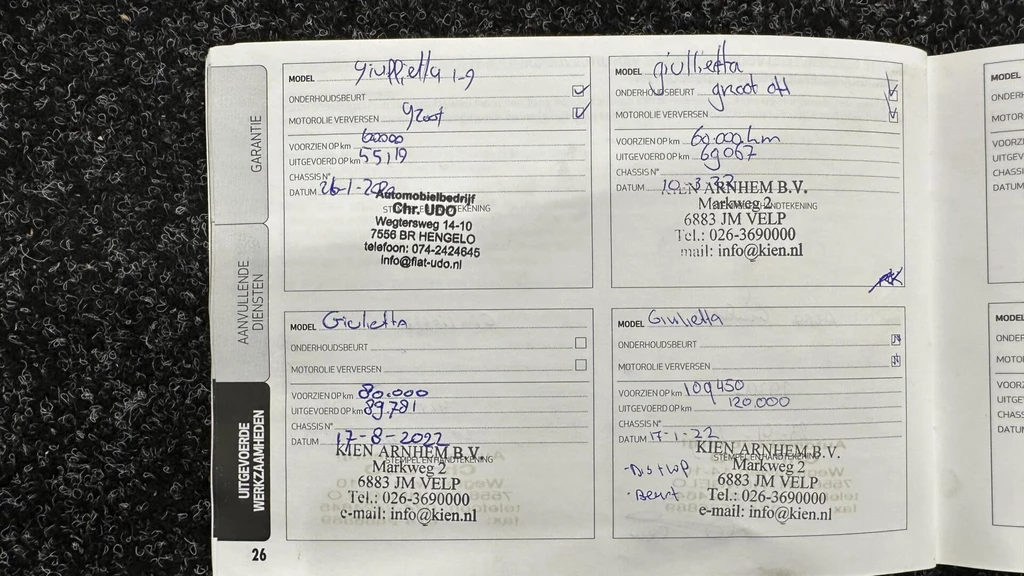 GARANTIE
AANVULLENDE
DIENSTEN
UITGEVOERDE
WERKZAAMHEDEN
26
MODEL Giulietta 1-9
ONDERHOUDSBEURT
MOTOROLIE VERVERSEN groot
VOORZIEN OP km 60000
UITGEVOERD OP km 55119
CHASSIS N°
DATUM 26-1-202
Automobielbedrijf
Chr. UDO
Wegtersweg 14-10
7556 BR HENGELO
telefoon: 074-2424645
info@fiat-udo.nl
MODEL giulietta
ONDERHOUDSBEURT groot
MOTOROLIE VERVERSEN
VOORZIEN OP km 60.000 km
UITGEVOERD OP km 69067
CHASSIS N°
DATUM 10-3-22
KIEN ARNHEM B.V.
Markweg 2
6883 JM VELP
Tel.: 026-3690000
mail: info@kien.nl
MODEL Giulietta
ONDERHOUDSBEURT
MOTOROLIE VERVERSEN
VOORZIEN OP km 80.000
UITGEVOERD OP km 89.781
CHASSIS N°
DATUM 17-8-2022
KIEN ARNHEM B.V.
STEMPEL EN HANDTEKENING
Markweg 2
6883 JM VELP
Tel.: 026-3690000
e-mail: info@kien.nl
MODEL Giulietta
ONDERHOUDSBEURT
MOTOROLIE VERVERSEN
VOORZIEN OP km 109450
UITGEVOERD OP km 120.000
CHASSIS N°
DATUM 17-1-22
KIEN ARNHEM B.V.
STEMPEL EN HANDTEKENING
Markweg 2
6883 JM VELP
Tel.: 026-3690000
e-mail: info@kien.nl
- Beurt
MODEL
MODEL